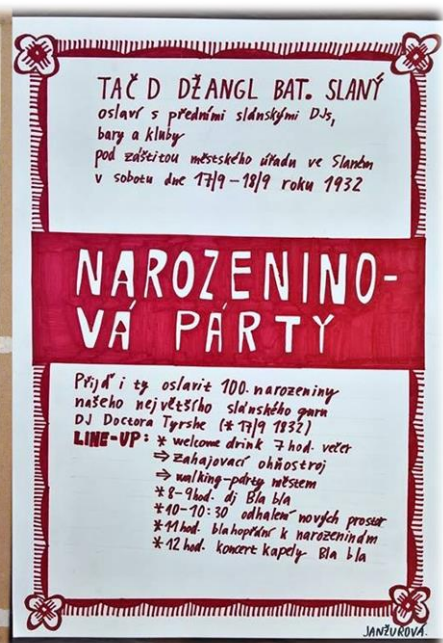 TAČ D DŽANGL BAT. SLANÝ
oslaví s předními slánskými DJs,
bary a kluby
pod záštitou městského úřadu ve Slaném
v sobotu dne 17/9-18/9 roku 1932
NAROZENINO-
VÁ PÁRTY
Přijď i ty oslavit 100. narozeniny
našeho největšího slánského guru
DJ Doctora Tyrshe (* 17/9 1832)
LINE-UP: * welcome drink 7 hod. večer
⇒ zahajovací ohňostroj
⇒ walking-párty městem
* 8-9hod. dj Bla bla
* 10-10:30 odhalení nových prostor
* 11 hod. blahopřání k narozeninám
* 12 hod. koncert kapely Bla bla
JANŽUROVÁ